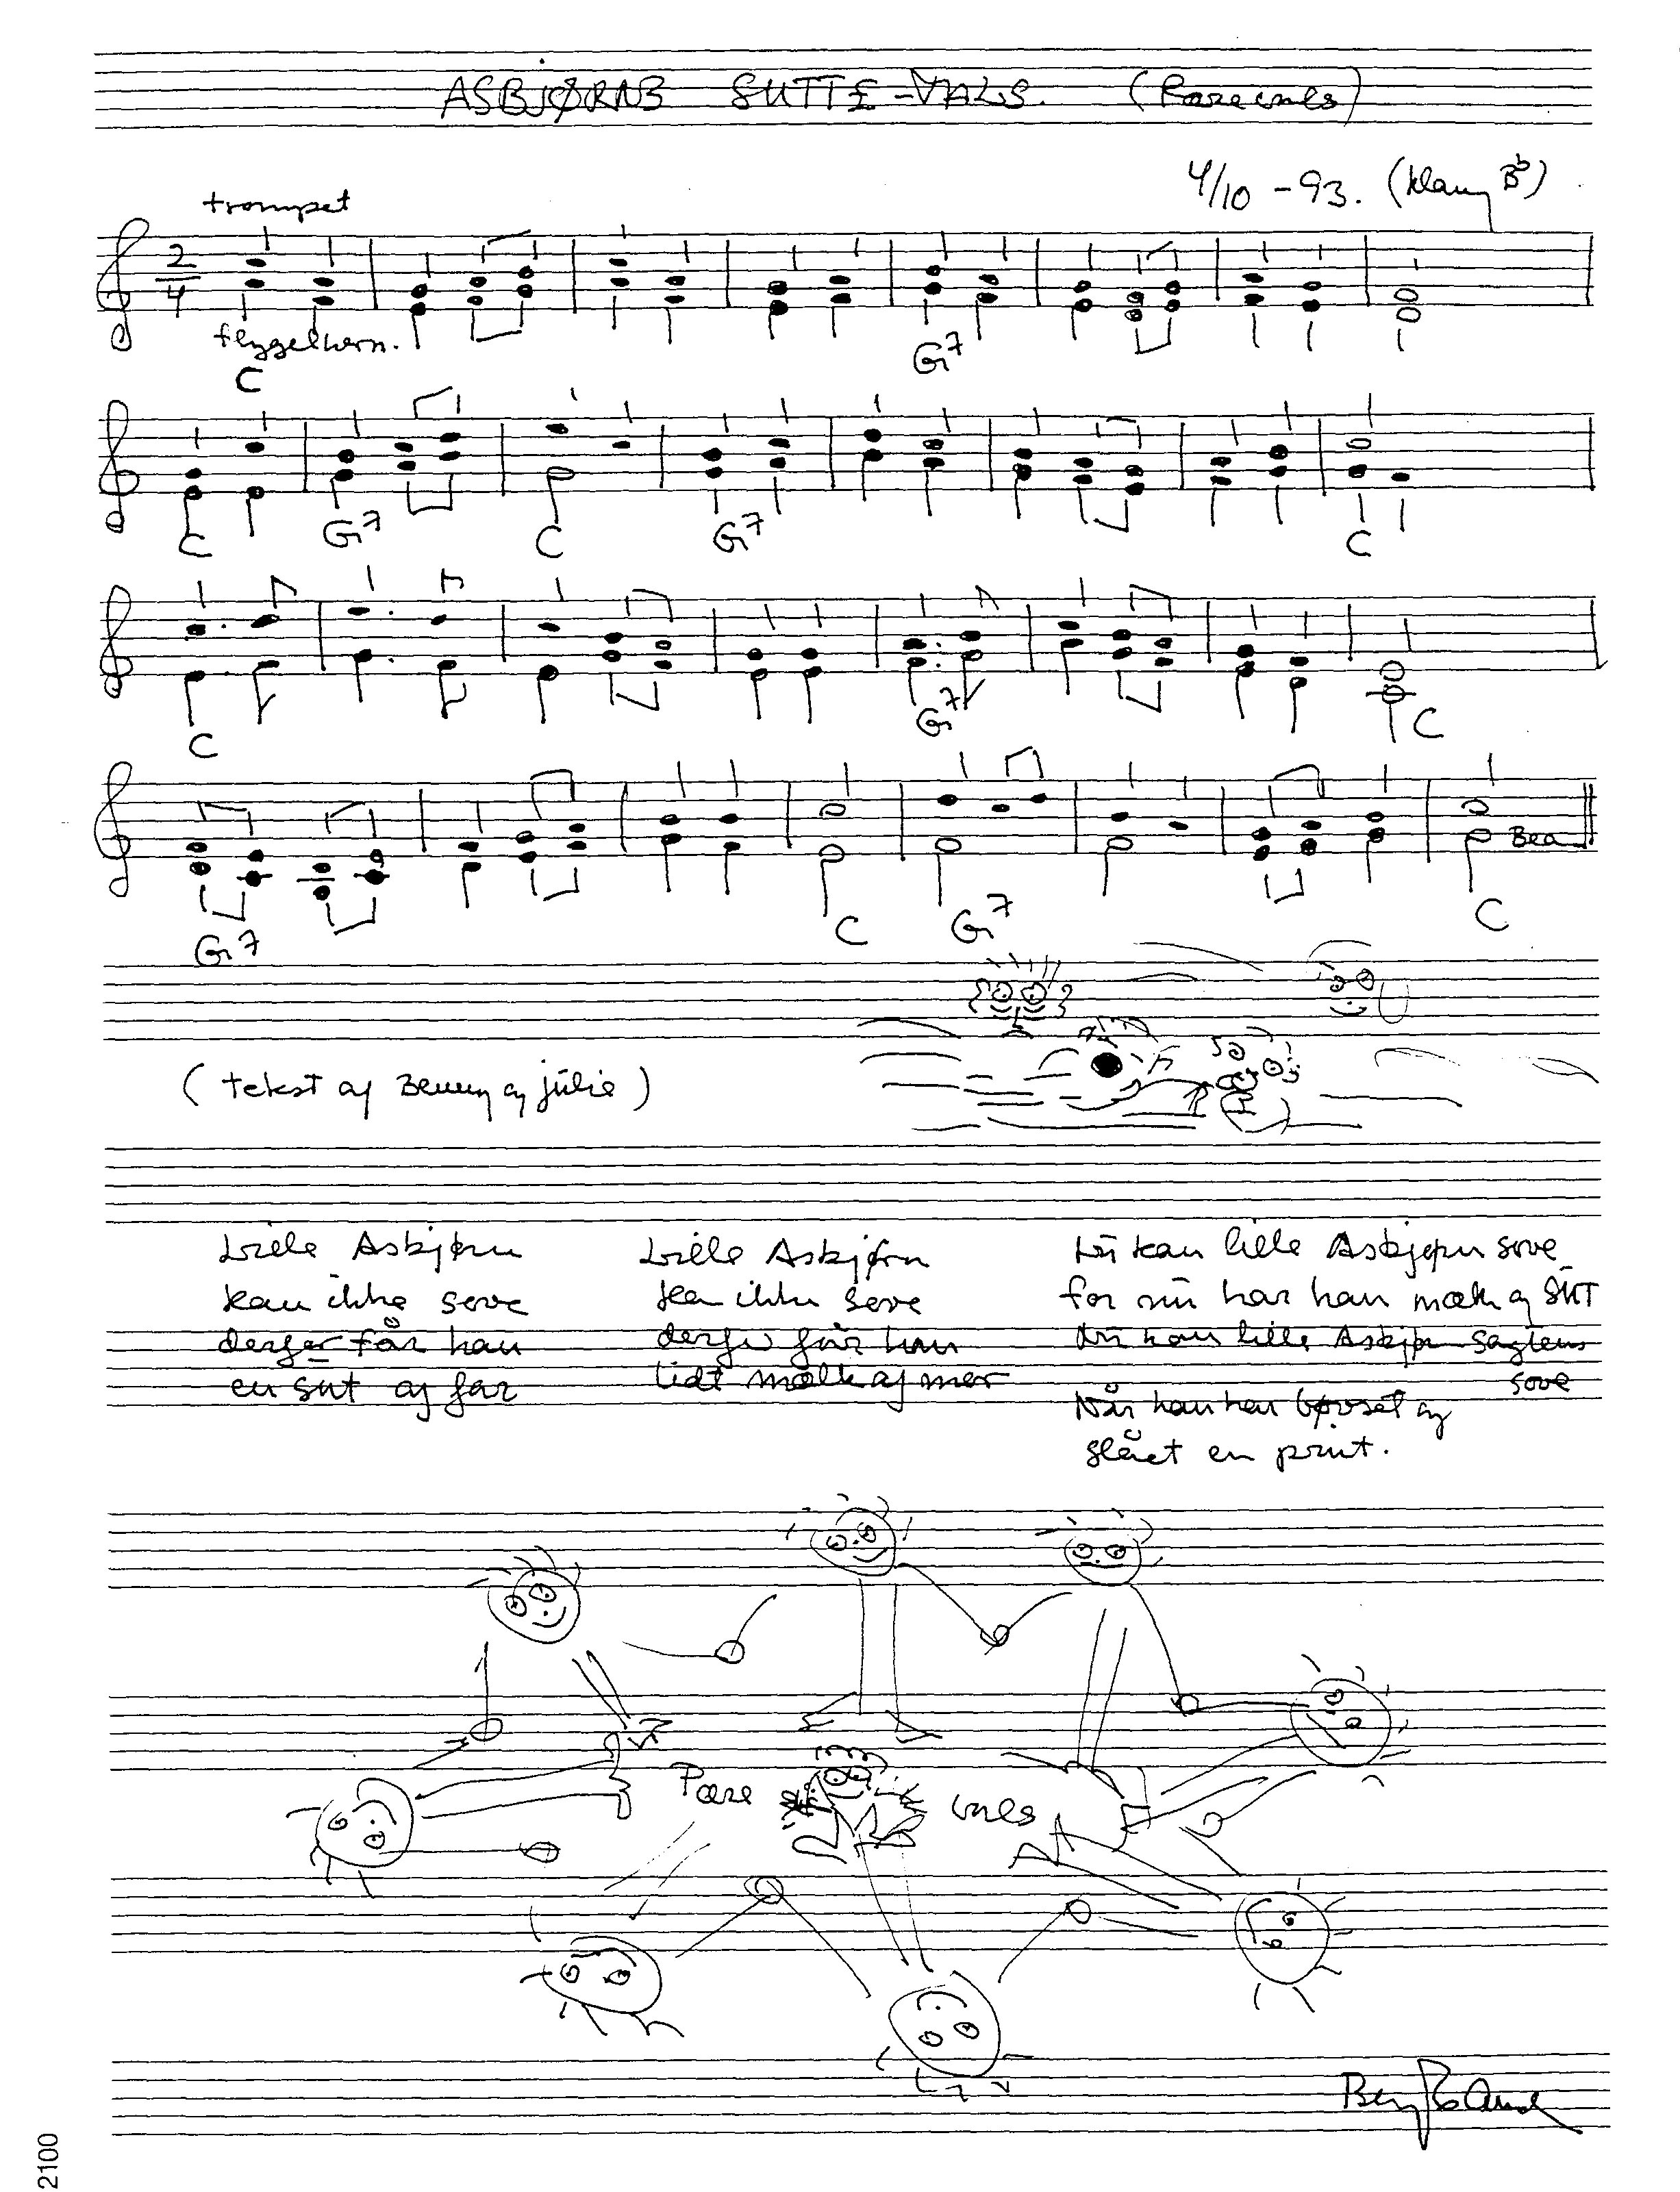 ASBJØRNS SUTTE-VALS. (Parevals)
4/10 -93. (klang Bb)
trompet
2
4
flygelhorn.
C
G7
C G7 C G7 C
C G7 C
Bea
G7 C G7 C
(tekst af Benny og Julie)
Lille Asbjørn
kan ikke sove
derfor får han
en sut af far
Lille Asbjørn
kan ikke sove
derfor får han
lidt mælk af mor
Nu kan lille Asbjørn sove
for nu har han mælk og SUT
Nu kan lille Asbjørn sagtens
sove
Når han har bøvset og
slået en prut.
Pare vals
2100